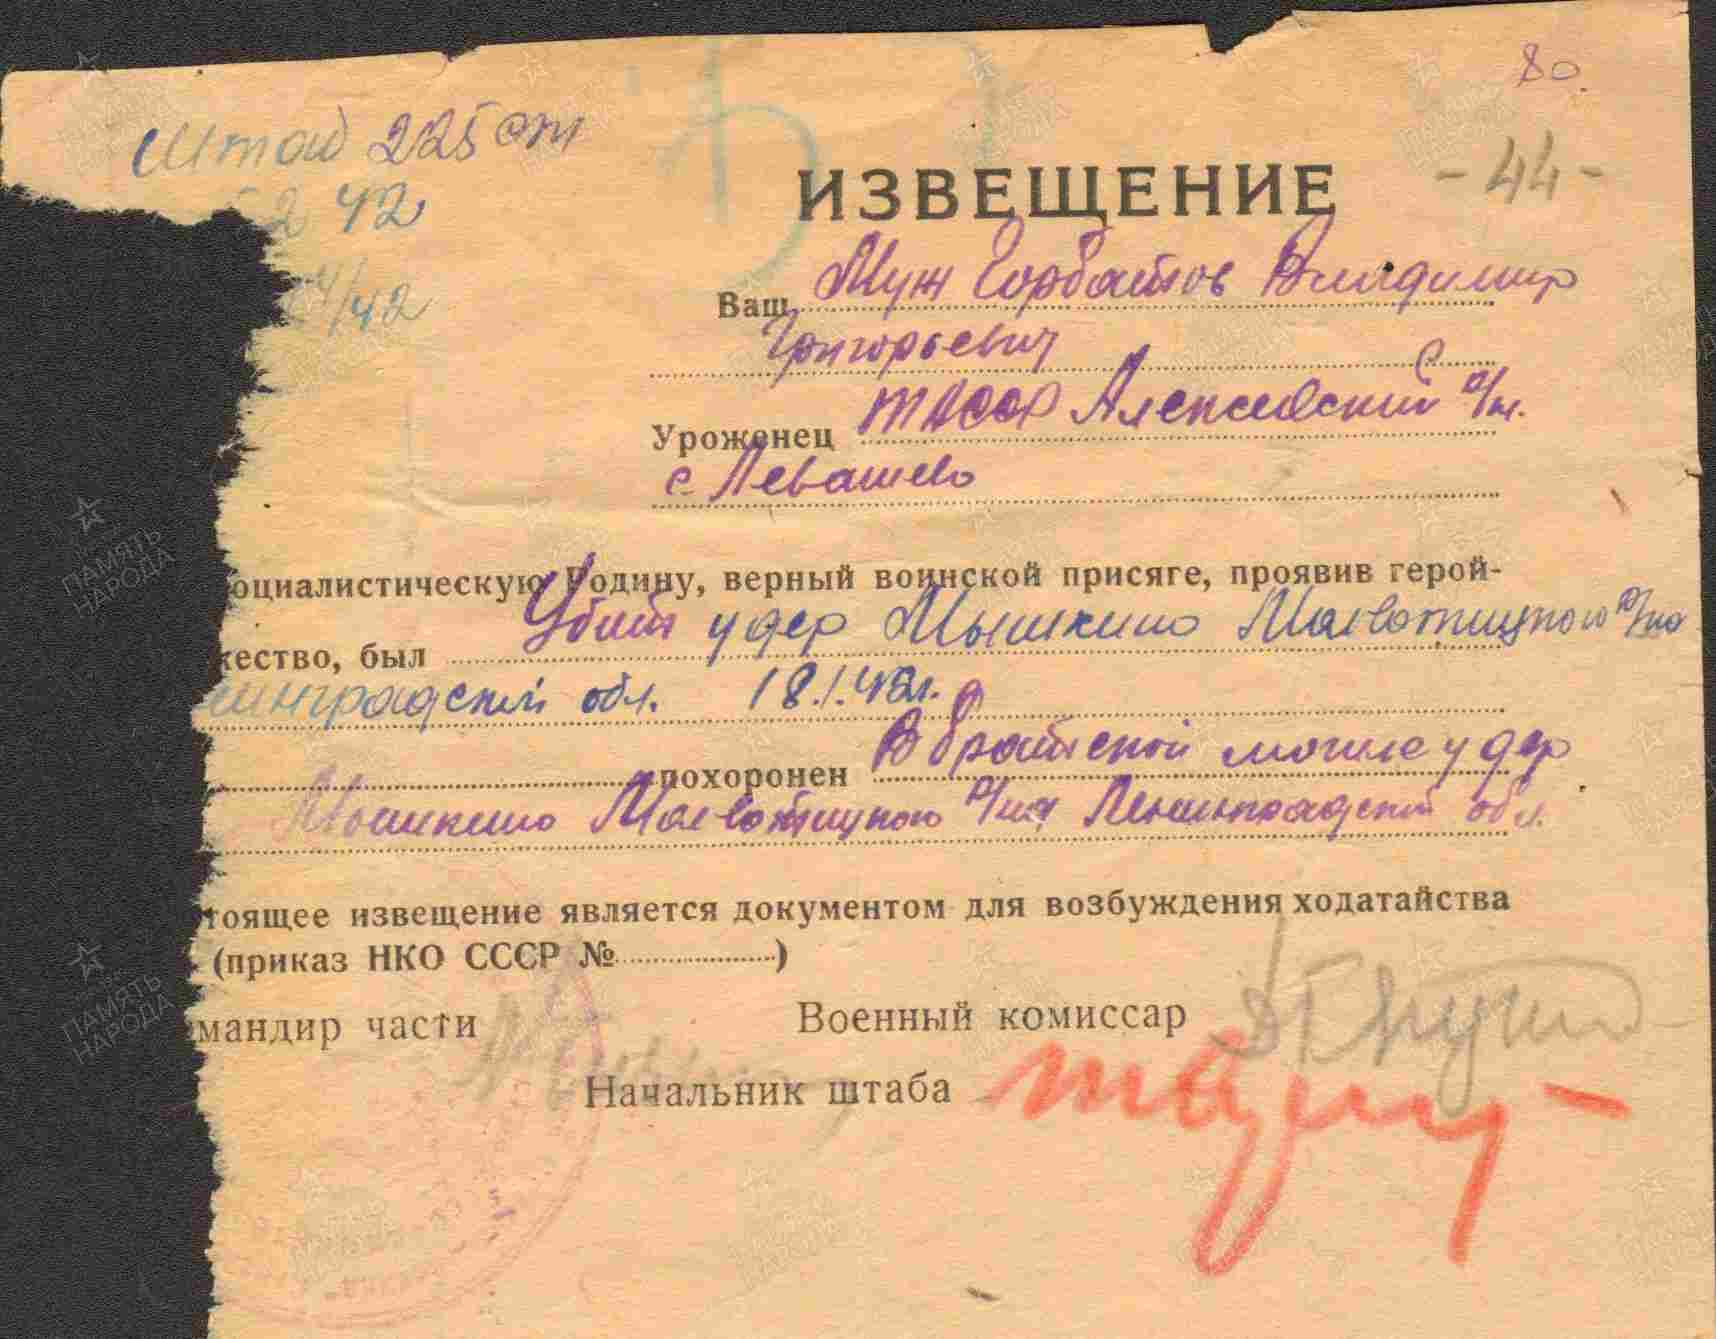 80.
Штаб 225 сп
- 44 -
2 42
ИЗВЕЩЕНИЕ
/42
Ваш Муж Горбатов Владимир
Григорьевич
Уроженец ТАССР Алексеевский р/н.
с. Левашево
оциалистическую Родину, верный воинской присяге, проявив герой-
жество, был Убит у дер Мышкино Молвотицкого р/на
нинградской обл. 18.1.42г.
похоронен В братской могиле у дер
Мышкино Молвотицкого р/на Ленинградской обл.
тоящее извещение является документом для возбуждения ходатайства
(приказ НКО СССР № )
мандир части Военный комиссар
Начальник штаба
ПАМЯТЬ НАРОДА